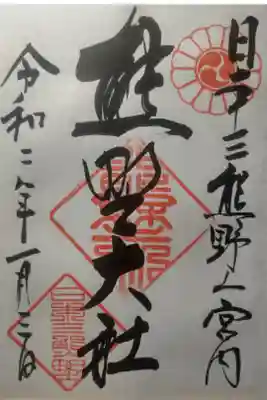 日本三熊野之宮内
熊野大社
令和二年一月三日